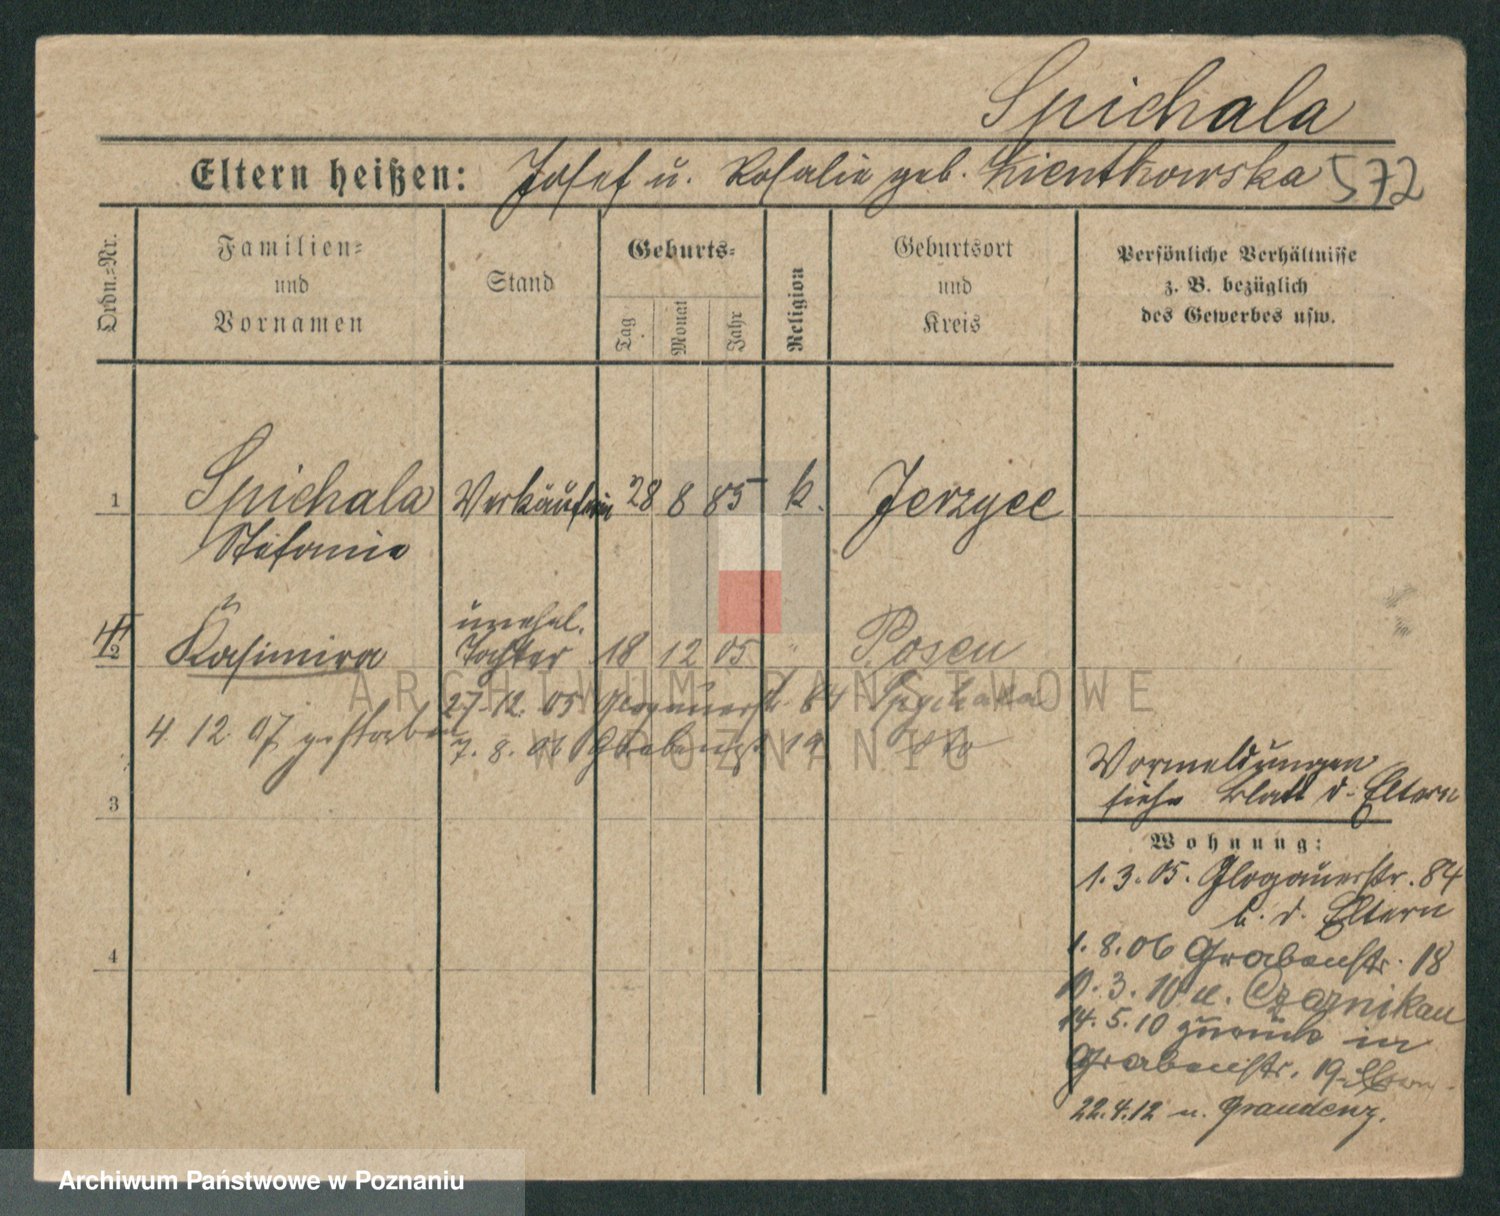 Spichala
Eltern heißen: Josef u. Rosalie geb. Kientkowska 572
Ordn.=Nr.
Familien=
und
Vornamen
Stand
Geburts=
Tag
Monat
Jahr
Religion
Geburtsort
und
Kreis
Persönliche Verhältnisse
z. B. bezüglich
des Gewerbes usw.
1 Spichala Verkäuferin 28 8 85 k. Jerzyce
Stefanie
unehel.
2 Kasimira Tochter 18 12 05 " Posen
27. 12. 05 Glogauerstr. 84 Spychala
4. 12. 07 gestorben
7. 8. 06 Grabenstr. 19
3
Vormeldungen
siehe Blatt d. Eltern
Wohnung:
1. 3. 05. Glogauerstr. 84
b. d. Eltern
1. 8. 06 Grabenstr. 18
4
10. 3. 10 u. Czarnikau
14. 5. 10 zurück in
Grabenstr. 19
22. 4. 12 u. Graudenz.
ARCHIWUM PAŃSTWOWE
W POZNANIU
Archiwum Państwowe w Poznaniu